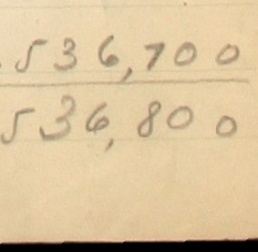 .536,700
536,800